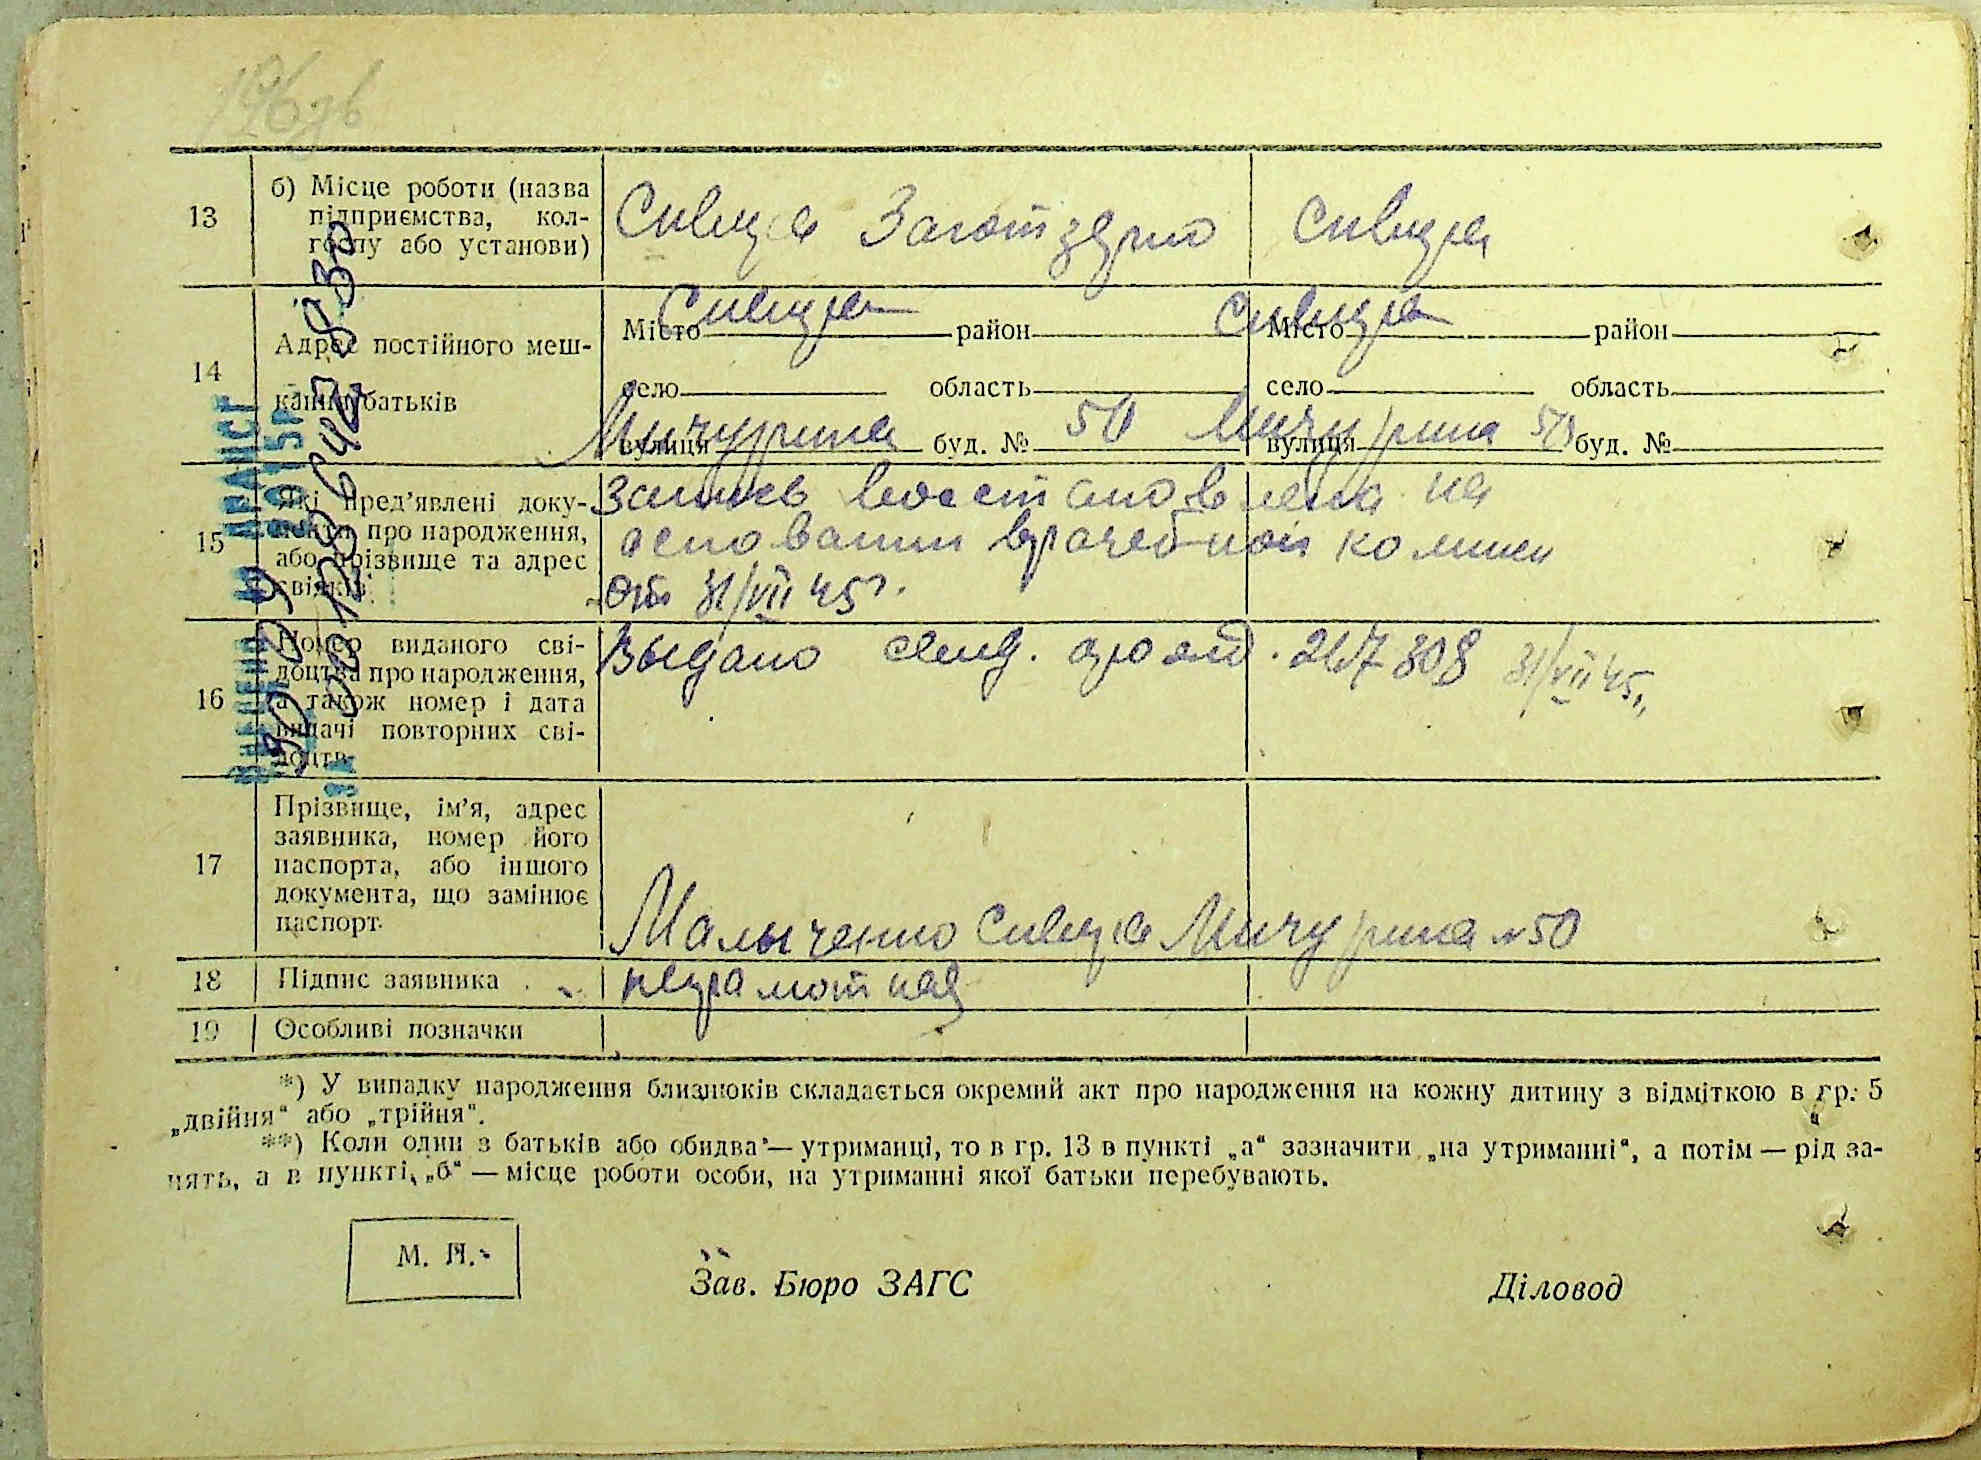 13
б) Місце роботи (назва
підприємства, кол-
госпу або установи)
Заготзерно
14
Адрес постійного меш-
кання батьків
Місто район Місто район
село область село область
Мичурина 50 Мичурина 50
вулиця буд. № вулиця буд. №
15
Які пред’явлені доку-
менти про народження,
або прізвище та адрес
свідків
запись восстановлена на
основании врачебной комиси
от 31/VII 45г.
16
Номер виданого сві-
доцтва про народження,
а також номер і дата
видачі повторних сві-
доцтв
Выдано 31/VII 45г.
17
Прізвище, ім’я, адрес
заявника, номер його
паспорта, або іншого
документа, що замінює
паспорт
Малыченко Мичурина №50
18 Підпис заявника неграмотная
19 Особливі позначки
*) У випадку народження близнюків складається окремий акт про народження на кожну дитину з відміткою в гр. 5
„двійня“ або „трійня“.
**) Коли один з батьків або обидва — утриманці, то в гр. 13 в пункті „а“ зазначити „на утриманні“, а потім — рід за-
нять, а в пункті „б“ — місце роботи особи, на утриманні якої батьки перебувають.
М. П.
Зав. Бюро ЗАГС Діловод